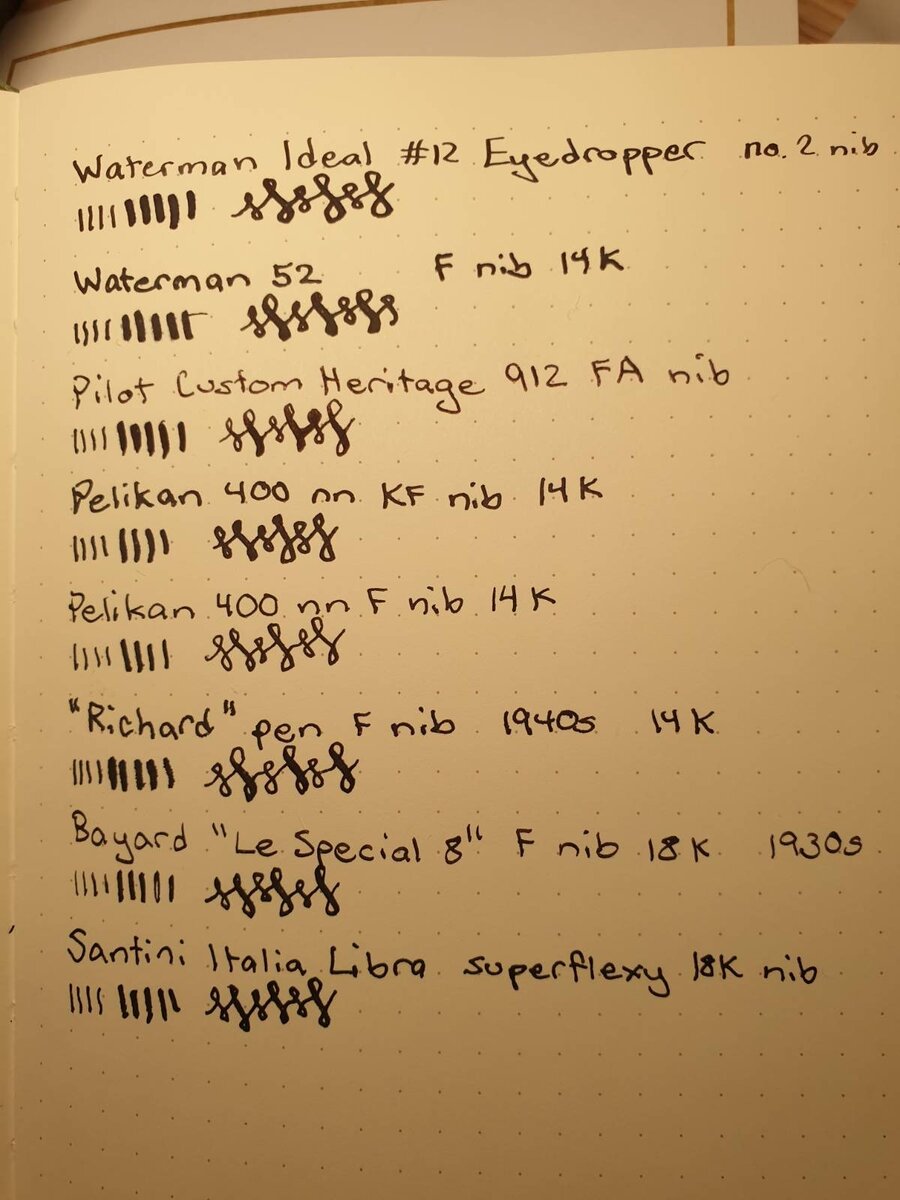 Waterman Ideal #12 Eyedropper no. 2 nib
Waterman 52 F nib 14K
Pilot Custom Heritage 912 FA nib
Pelikan 400 nn KF nib 14K
Pelikan 400 nn F nib 14K
"Richard" pen F nib 1940s 14K
Bayard "Le Special 8" F nib 18K 1930s
Santini Italia Libra superflexy 18K nib